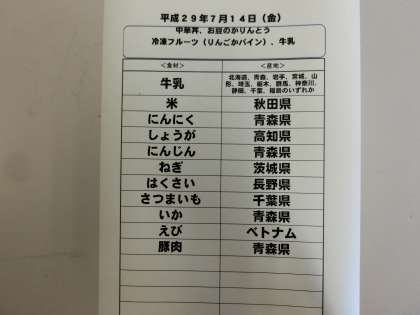 平成２９年７月１４日（金）
中華丼、お豆のかりんとう
冷凍フルーツ（りんごかパイン）、牛乳
＜食材＞ ＜産地＞
牛乳 北海道、青森、岩手、宮城、山
形、埼玉、栃木、群馬、神奈川、
静岡、千葉、福島のいずれか
米 秋田県
にんにく 青森県
しょうが 高知県
にんじん 青森県
ねぎ 茨城県
はくさい 長野県
さつまいも 千葉県
いか 青森県
えび ベトナム
豚肉 青森県